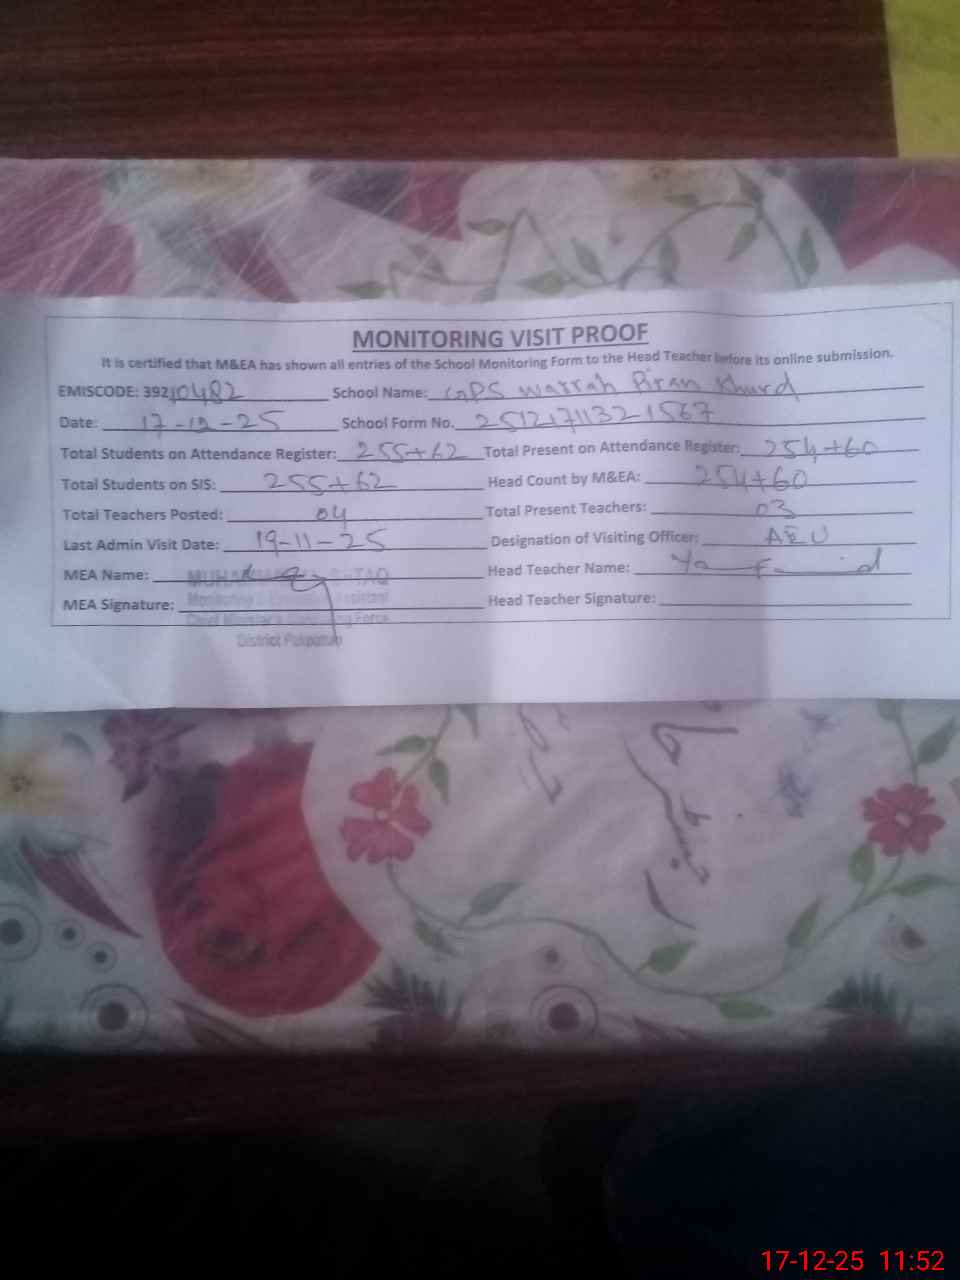 MONITORING VISIT PROOF
It is certified that M&EA has shown all entries of the School Monitoring Form to the Head Teacher before its online submission.
EMISCODE: 39210482 School Name: GPS Warrah Piran Khurd
Date: 17-12-25 School Form No. 2512171132 1567
Total Students on Attendance Register: 255+62 Total Present on Attendance Register: 254+60
Total Students on SIS: 255+62 Head Count by M&EA: 254+60
Total Teachers Posted: 04 Total Present Teachers: 03
Last Admin Visit Date: 19-11-25 Designation of Visiting Officer: AEO
MEA Name: Head Teacher Name:
MEA Signature: Head Teacher Signature:
Monitoring Assistant
Force
District Pakpattan
17-12-25 11:52